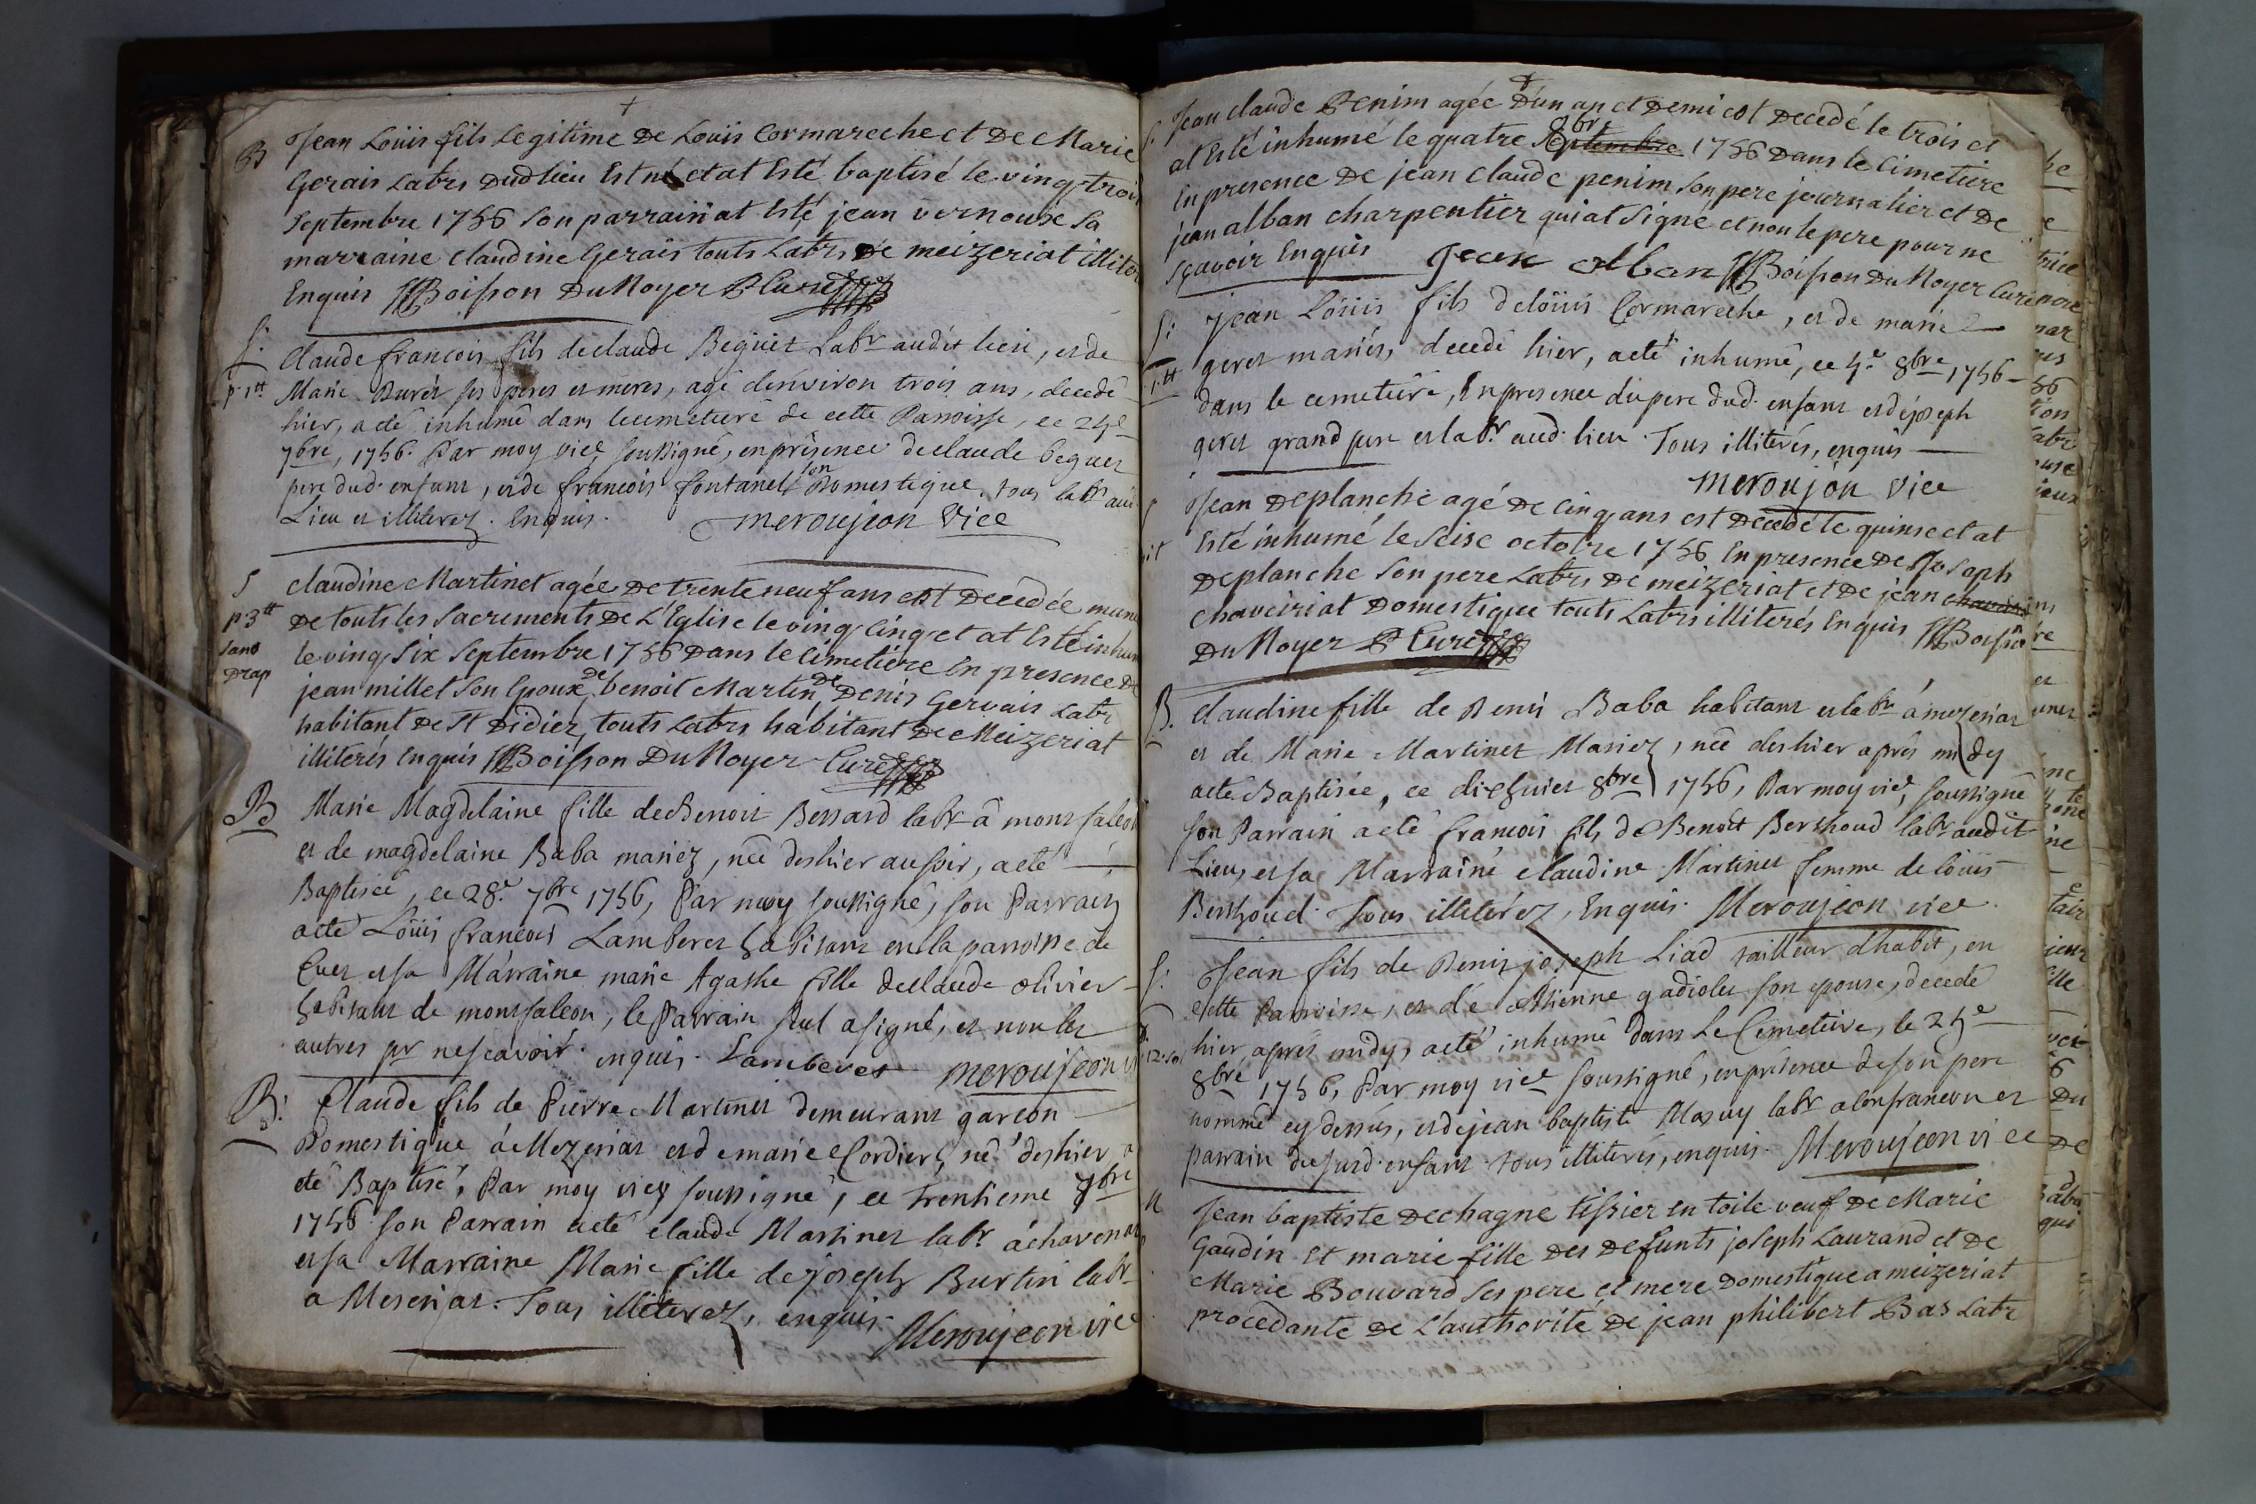 B
Jean Loüis fils Legitime De Loüis Cormareche et De Marie
Gerais Labrs Dudlieu Est né et at Esté baptisé le vingt trois
Septembre 1756 Son parrain at Esté jean vernouse Sa
marraine claudine Gerais touts Labrs De meizeriat illiter
Enquis Boisson Du Noyer Curé
S.
p 1tt
Claude francois fils de claude Beguet Labr audit lieu, et de
Marie Buret ses peres et meres, agé denviron trois ans, decedé
hier, a été inhumé dans le cemetiere de cette Parroisse, ce 25e
7bre, 1756. Par moy vice soussigné, en présence de claude beguet
pere dud. enfant, et de francois fontanel son Domestique, tous labrs aud.
Lieu et illiterez. Enquis. meroujeon vice
S
p 3tt
sans
Drap
claudine Martinet agée De trente neuf ans est Decedée munie
De touts les Sacrements De L'Eglise le ving cinq et at Esté inhum
le ving Six Septembre 1756 Dans le Cimetiére En presence De
jean millet Son Epoux, de benoit Martin, De Denis Gervais Labr
habitant De St Didier, touts Labrs habitant De Meizeriat
illiterés Enquis Boisson Du Noyer Curé
B
Marie Magdelaine fille de Benoit Bessard labr â mont faleon
et de magdelaine Baba mariez, née deshier au soir, a eté
Baptisée, ce 28e 7bre 1756, Par moy soussigné, son Parrain
a eté Loüis francois Lamberet habitant en la parroisse de
Cuet et sa Marraine marie Agathe fille de claude olivier
habitant de montfaleon, le Parrain seul a signé, et non les
autres pr ne scavoir. enquis. Lamberet meroujeon vi
B:
Claude fils de Pierre Martinet demeurant garcon
Domestique à Mezeriat et de marie Cordier, né deshier, a
eté Baptisé, Par moy vice soussigné, ce trentieme 7bre
1756 son Parrain a eté claude Martinet labr à chaven
et sa Marraine Marie fille de joseph Burtin labr
a Meseriat. Tous illiterez, enquis.
Meroujeon vice
Jean claude Penim agée D'un an et Demi est Decedé le trois et
at Esté inhumé le quatre Septembre 8bre 1756 Dans le Cimetiére
En presence De jean claude penim Son pere journalier et De
jean alban charpentier qui at Signé et non le pere pour ne
Sçavoir Enquis Jean Alban Boisson Du Noyer Curé
S:
1tt
Jean Loüis fils de loüis Cormareche, et de marie
geret mariés, decedé hier, a eté inhumé, ce 5e 8bre 1756
dans le cemetiére, En presence du pere dud. enfant et de joseph
geret grand pere et labr aud. lieu. Tous illiterés, enquis
meroujon vice
Jean Deplanche agé De Cinq ans est Decedé le quinse et at
Esté inhumé le Seise octobre 1756 En presence De Joseph
Deplanche Son pere Labrs De meizeriat et De jean
Chaveiriat Domestique touts Labrs illiterés Enquis Boisson
Du Noyer Curé
B.
claudine fille de Denis Baba habitant et labr à mezeriat
et de Marie Martinet Mariez, née deshier aprés midy
a eté Baptisée, ce dixhuiet 8bre 1756, Par moy vice soussigné
son Parrain a eté francois fils de Benoit Berthoud labr audit
Lieu, et sa Marraine claudine Martinet femme de loüis
Berthoud. Tous illiterez, Enquis. Meroujeon vice
S:
12 so
Jean fils de Denis joseph Liad tailleur d'habit, en
cette Parroisse, et de Etienne gadiolet son epouse, decedé
hier, aprés midy, a eté inhumé dans Le Cemetiére, le 25e
8bre 1756, Par moy vice soussigné, en présence de son pere
nommé cy dessus, et de jean baptiste Mazuy labr a lonfrancon et
parrain du susd. enfant. tous illiterés, enquis. Meroujeon vice
M
Jean baptiste Dechagne tissier en toile veuf De Marie
Gaudin Et marie fille Des Defunts joseph Laurand et De
Marie Bouvard Ses pere et mere Domestique a meizeriat
procedante De L'authorité De jean philibert Bas Labr